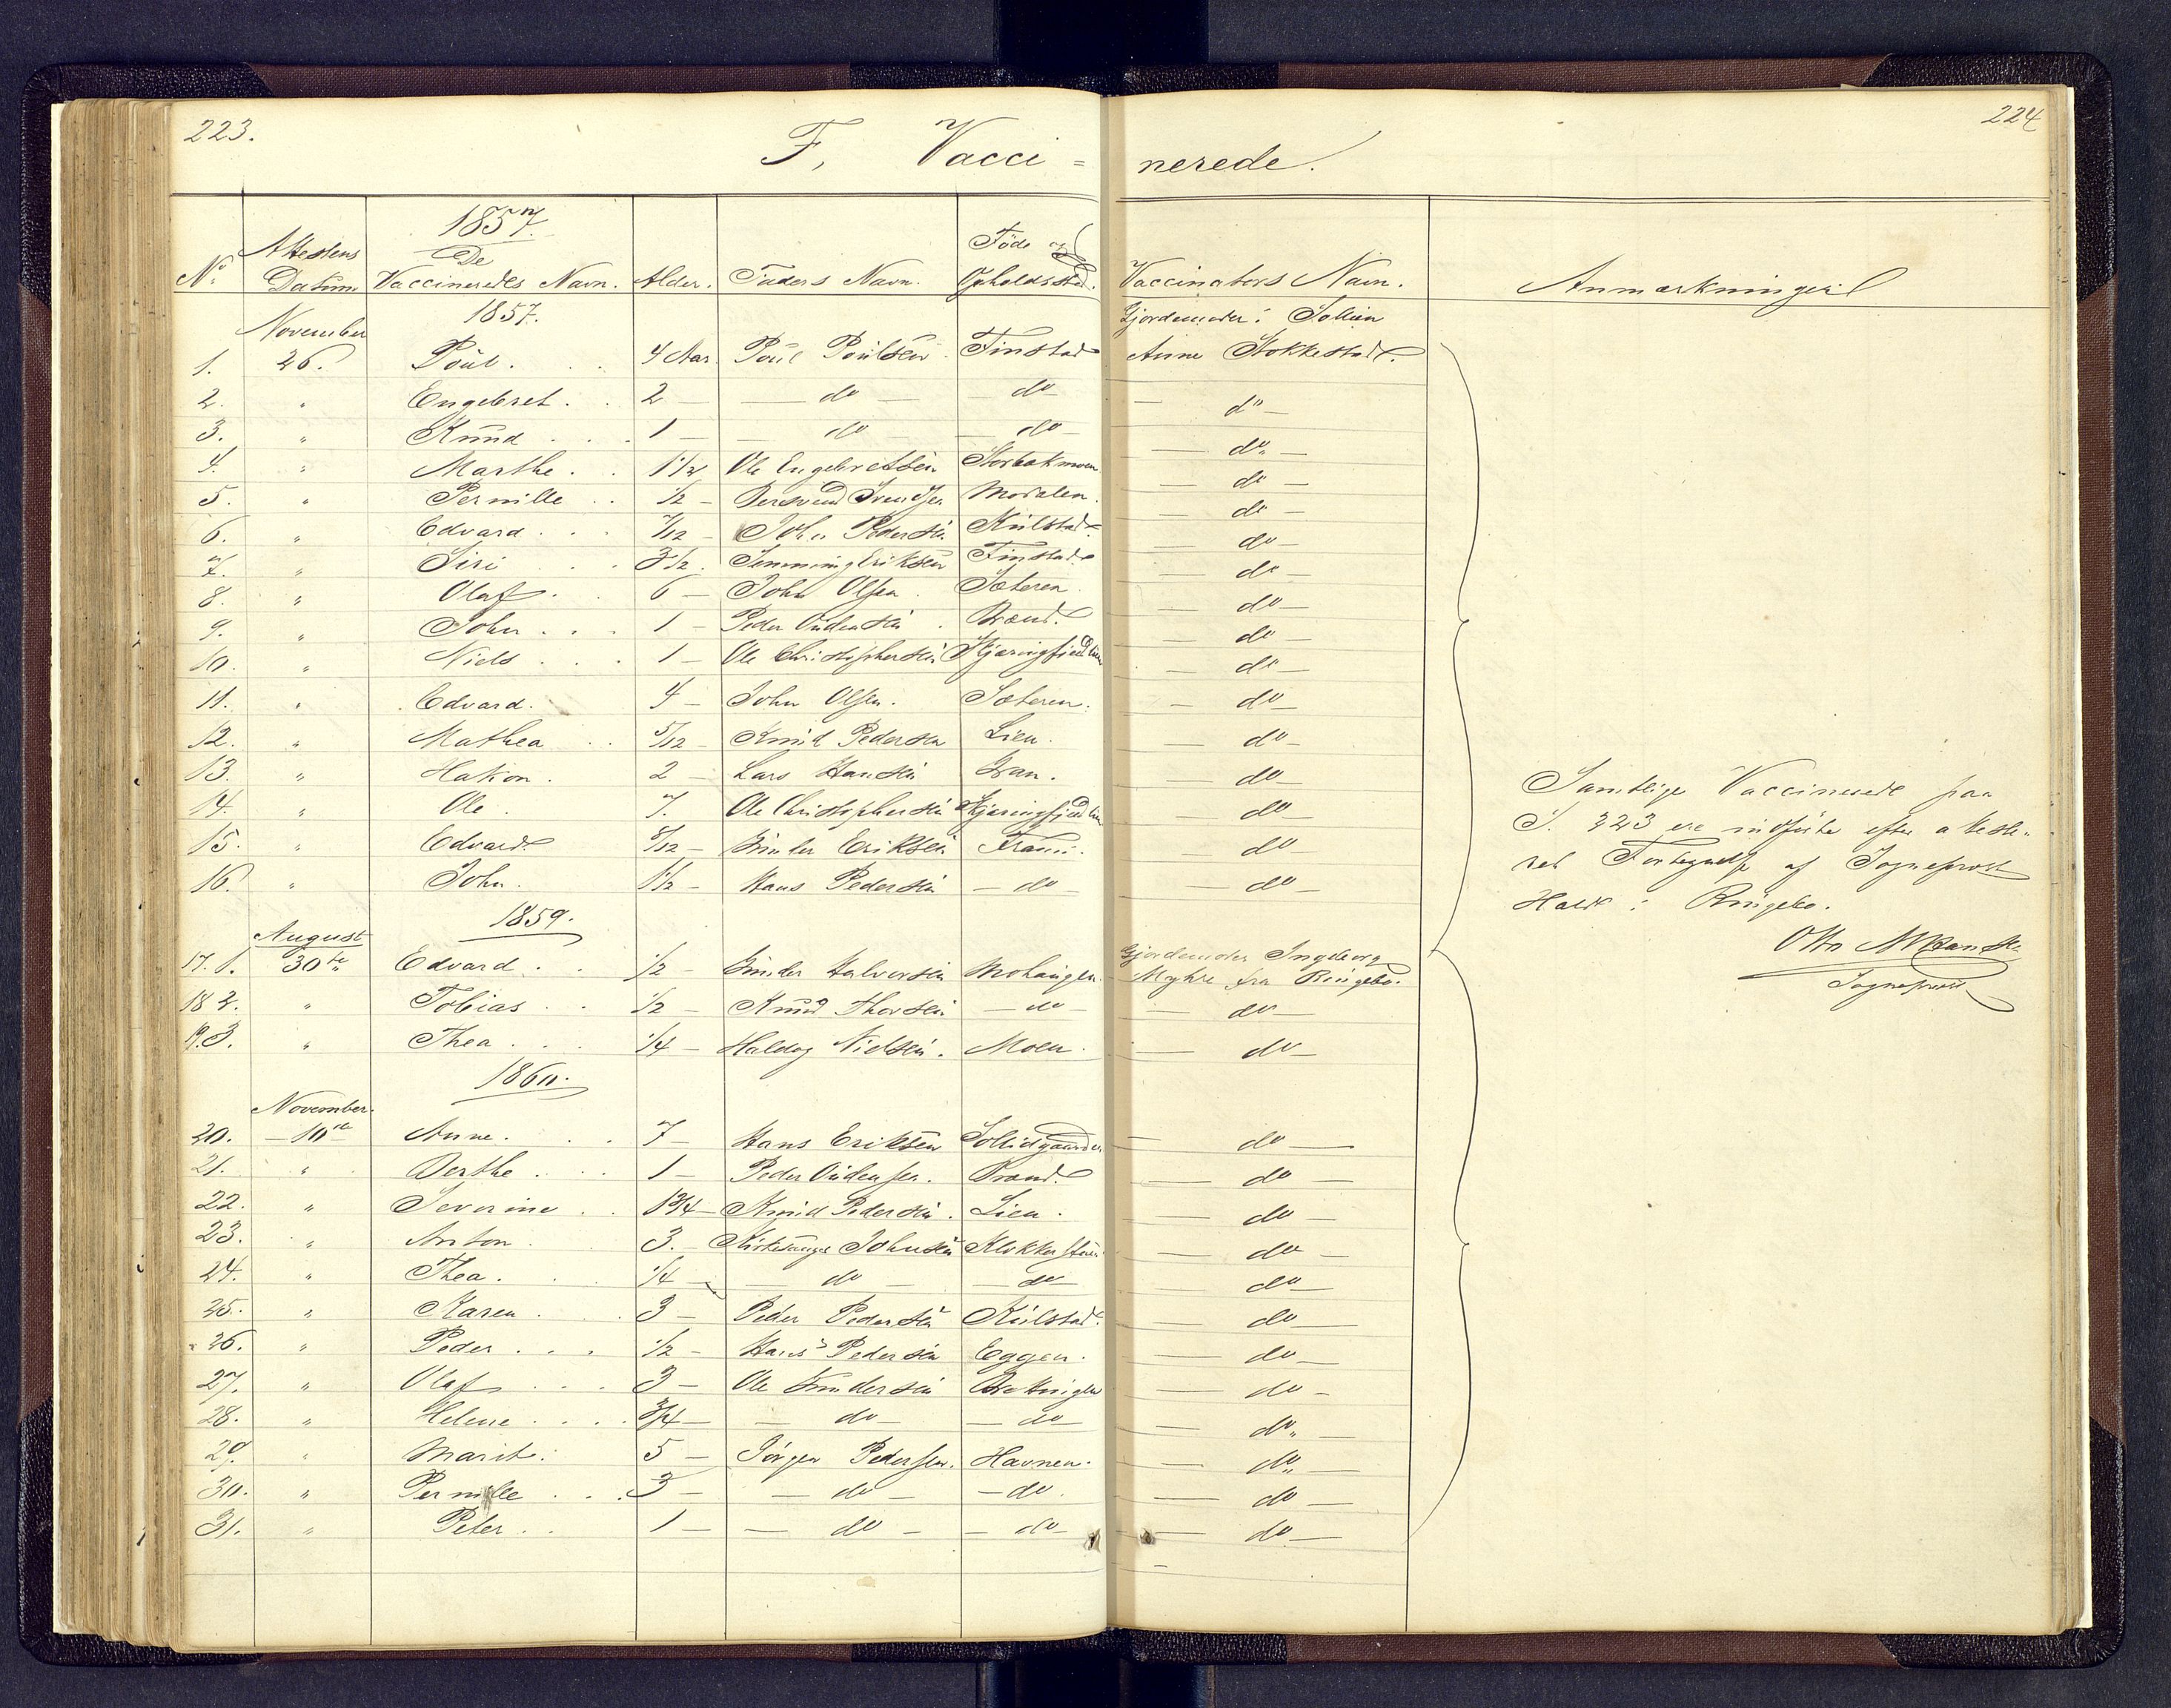 223.
224
F, Vacci=
nerede.
1857.
No. Attestens Datum De Vaccineredes Navn. Alder. Faders Navn. Føde og Opholdssted. Vaccinators Navn. Anmærkninger
November 1857. Gjordemoder i Sollien
1. 26. Poul. 4 Aar. Poul Poulsen Finstad Anne Stokkestad.
2. " Engebret. 2 — do — do — do —
3. " Knud 1 — do — do — do —
4. " Marthe. 1 1/2 Ole Engebretsen Storbakmoen — do —
5. " Pernille 1/2 — Svendsen Modalen. — do —
6. " Edvard 7/12 — John Pedersen Kulstad. — do —
7. " Siri 3 1/2. Eriksen Finstad — do —
8. " Olaf. 6 — John Olsen. Sæteren — do —
9. " John 1 — Peder Oudensen. Brænd. — do —
10. " Niels 1 — Ole Christophersen — do —
11. " Edvard. 4 — John Olsen. Sæteren. — do —
12. " Mathea 5/12 — Knud Pedersen Lien. — do —
13. " Hakon. 2 — Lars Hansen — do —
14. " Ole. 7. Ole Christophersen — do —
15. " Edvard 5/12 — Gunder Eriksen — do —
16. " John. 1 1/2 — Hans Pedersen — do — — do —
1859.
August
17. 1. 30te Edvard 1/2 — Gunder Halvorsen Mohaugen. Gjordemoder Ingeborg Myhre fra Ringebo.
18 2. " Tobias 1/2 — Knud Thorsen — do — — do —
19. 3. " Thea 1/4 — Haldog Nielsen. Moen. — do —
1860.
November.
20. — 10de Anne. 7 — Hans Eriksen Sollidgaarden — do —
21. " Berthe 1 — Peder Oudensen. Brænd. — do —
22. " Severine 1 3/4 — Knud Pedersen. Lien. — do —
23. " Anton 3. — Kirkesanger Johnsen — do —
24. " Thea. 1/4 — do — do — do —
25. " Karen 3 — Peder Pedersen Kulstad. — do —
26. " Peder 1/2 — Hans Pedersen Eggen. — do —
27. " Olaf 3 — Ole Gundersen — do —
28. " Helene 3/4 — do — do — do —
29. " Marit. 5 — Jørgen Pedersen. Havnen. — do —
30. " Pernille 3 — do — do. — do —
31. " Peter 1 — do — do — do —
Samtlige Vaccinerede paa
S. 223 ere indførte efter atteste-
ret Fortegnelse af Sogneprest
Hald i Ringebo.
Otto
Sogneprest